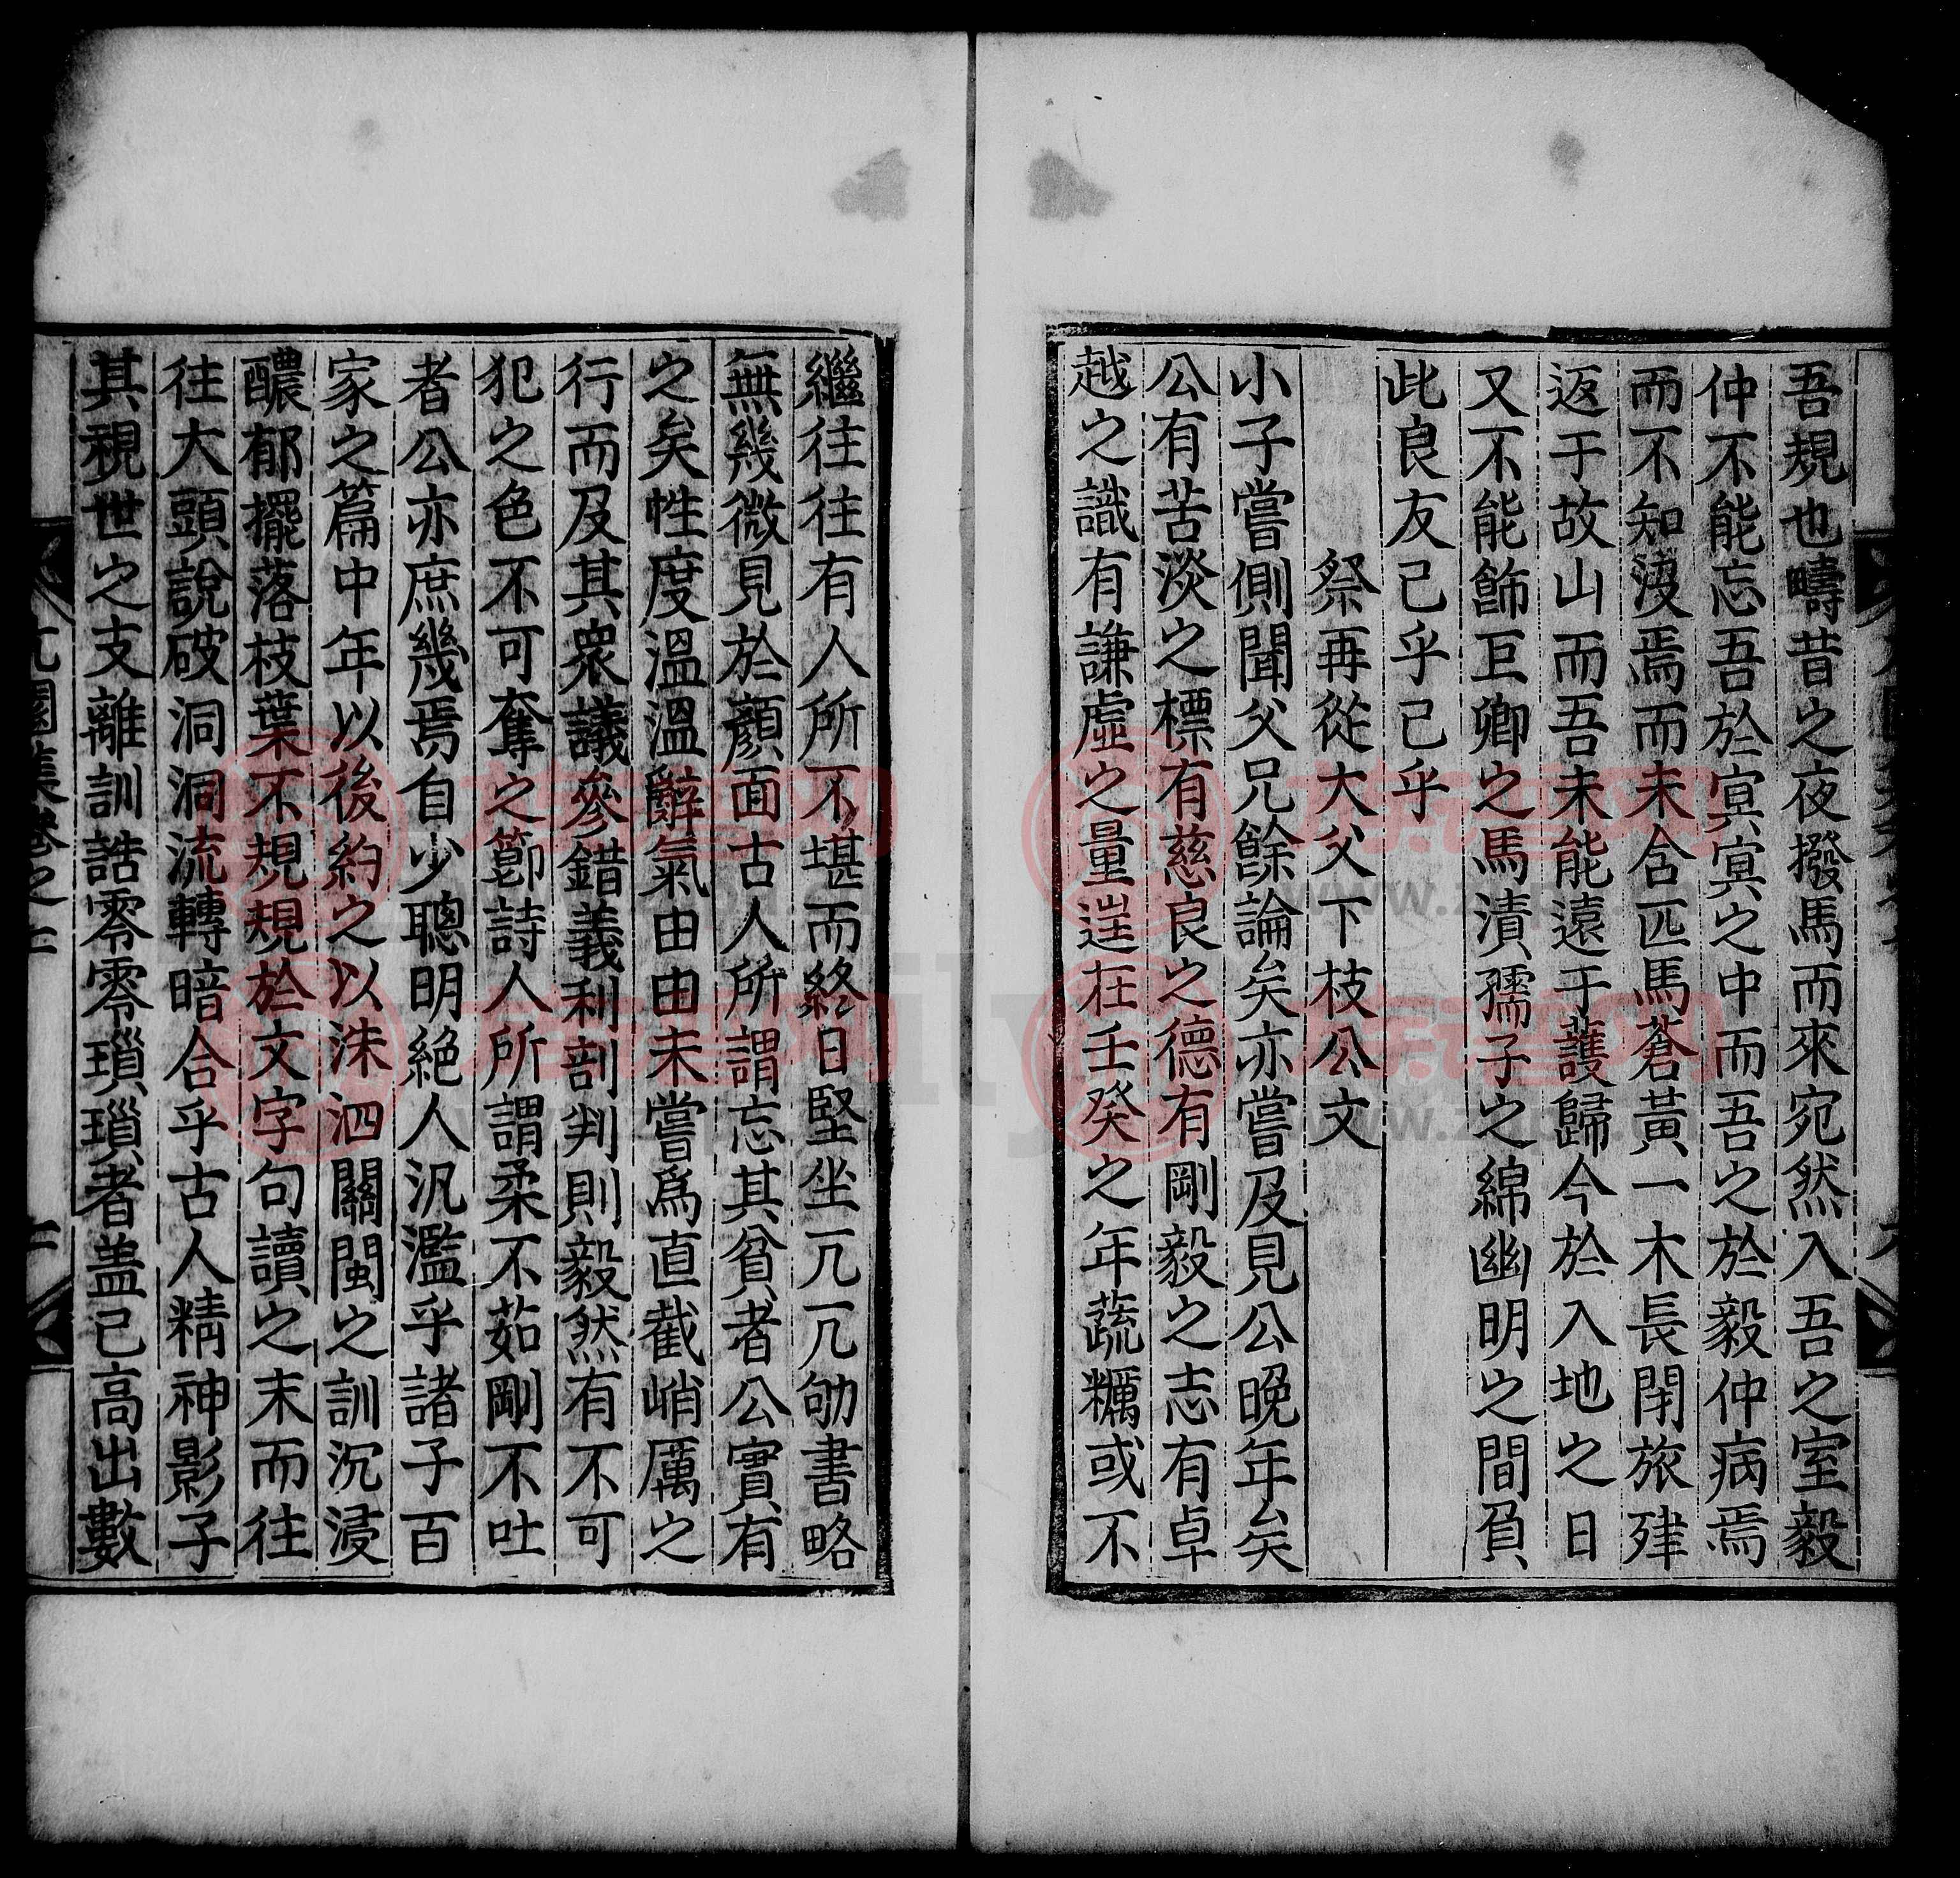 吾規也疇昔之夜撥馬而來宛然入吾之室毅
仲不能忘吾於冥冥之中而吾之於毅仲病焉
而不知沒焉而未含匹馬蒼黃一木長閉旅肂
返于故山而吾未能遠于護歸今於入地之日
又不能飾巨卿之馬漬孺子之綿幽明之間負
此良友已乎已乎
祭再從大父下枝公文
小子嘗側聞父兄餘論矣亦嘗及見公晚年矣
公有苦淡之標有慈良之德有剛毅之志有卓
越之識有謙虛之量逬在壬癸之年蔬糲或不
繼往往有人所不堪而終日堅坐兀兀劬書略
無幾微見於顏面古人所謂忘其貧者公實有
之矣性度溫溫辭氣由由未嘗爲直截峭厲之
行而及其衆議參錯義利剖判則毅然有不可
犯之色不可奪之節詩人所謂柔不茹剛不吐
者公亦庶幾焉自少聰明絶人汎濫乎諸子百
家之篇中年以後約之以洙泗關閩之訓沉浸
醲郁擺落枝葉不規規於文字句讀之末而往
往大頭說破洞洞流轉暗合乎古人精神影子
其視世之支離訓誥零零瑣瑣者盖已高出數
園集卷之十
族譜网
www.zupu.cn
族譜网
www.zupu.cn
族譜网
www.zupu.cn
族譜网
www.zupu.cn